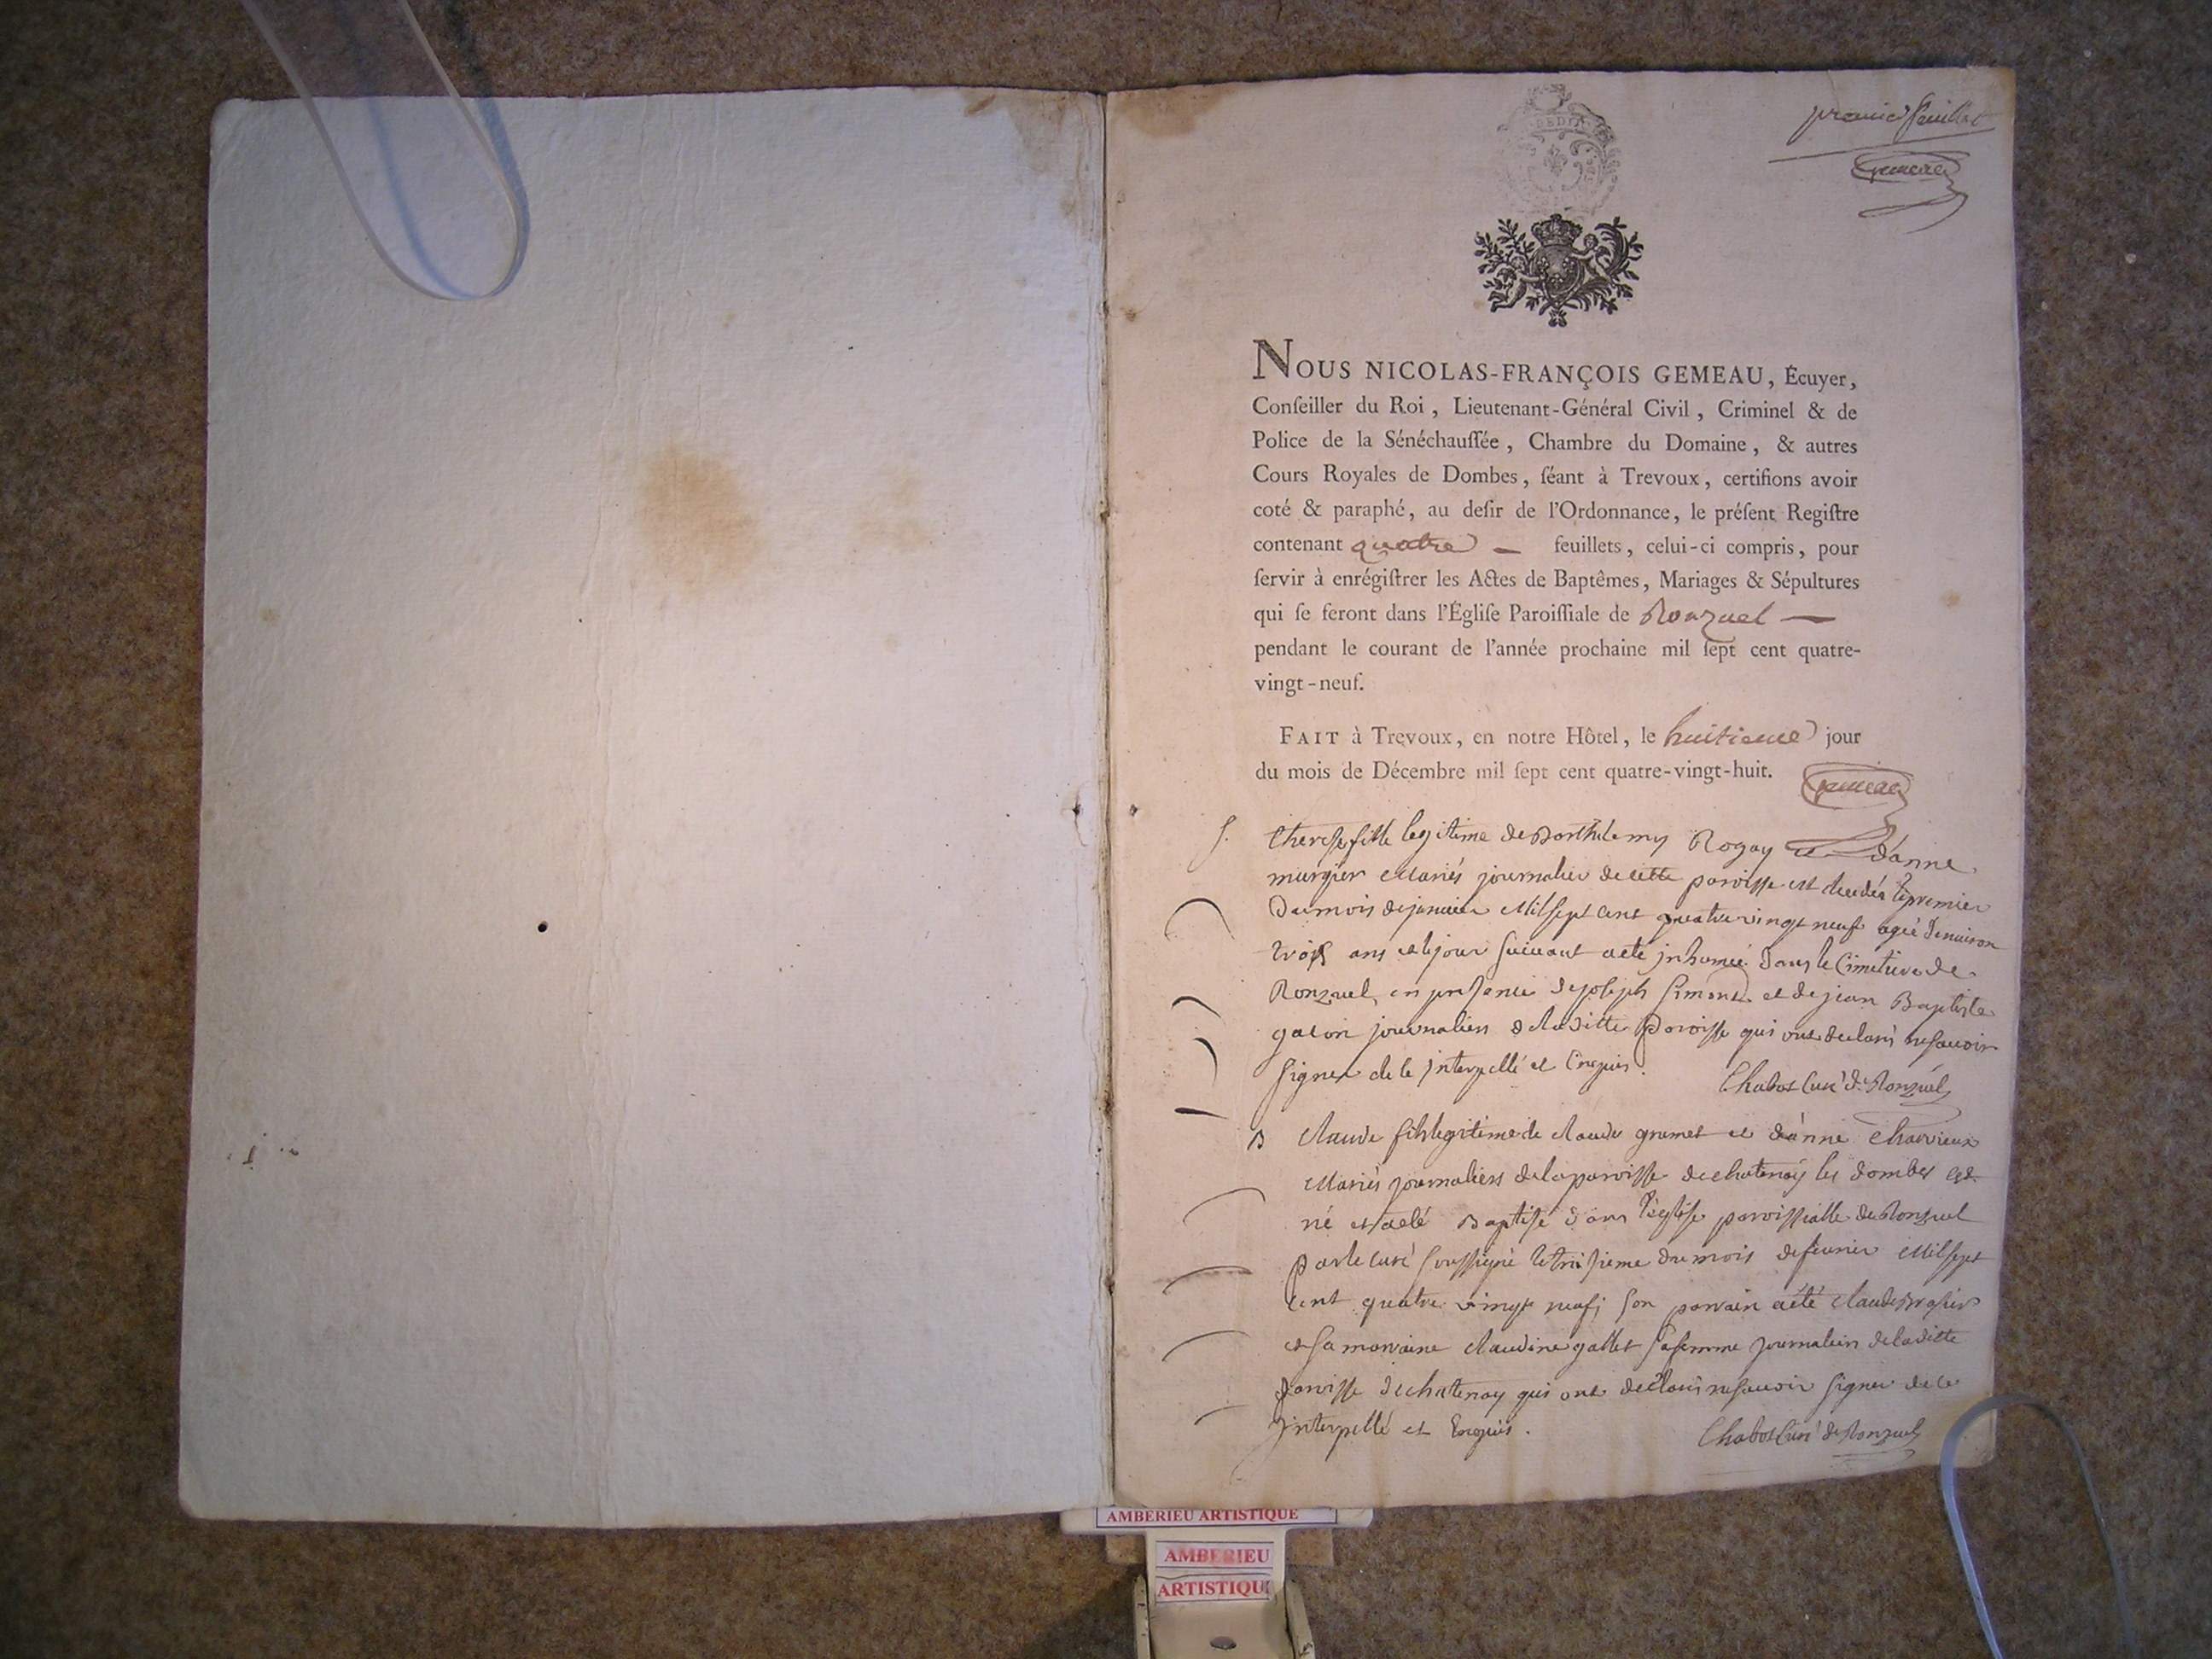 premier feuillet
Gemeau
NOUS NICOLAS-FRANÇOIS GEMEAU, Écuyer,
Conſeiller du Roi, Lieutenant-Général Civil, Criminel & de
Police de la Sénéchauſſée, Chambre du Domaine, & autres
Cours Royales de Dombes, ſéant à Trevoux, certifions avoir
coté & paraphé, au deſir de l'Ordonnance, le préſent Regiſtre
contenant quatre — feuillets, celui-ci compris, pour
ſervir à enrégiſtrer les Actes de Baptêmes, Mariages & Sépultures
qui ſe feront dans l'Égliſe Paroiſſiale de Ronzuel —
pendant le courant de l'année prochaine mil ſept cent quatre-
vingt-neuf.
FAIT à Trevoux, en notre Hôtel, le huitieme jour
du mois de Décembre mil ſept cent quatre-vingt-huit.
Gemeau
S. therese fille legitime de Barthelemy Rogay et d'anne
murgier mariés journalier de cette paroisse est decedée le premier
du mois de janvier mil sept cent quatre vingt neuf agée d'environ
trois ans et le jour suivant a eté inhumée dans le Cimetiere de
Ronzuel en presence de joseph Simond et de jean Baptiste
galon journaliers de la ditte paroisse qui ont declaré ne savoir
signer de ce interpellé et Enquis.
Chabot Curé de Ronzuel
B Claude fils legitime de Claude grumet et d'anne Charvieux
mariés journaliers de la paroisse de chatenay les dombes est
né et a eté Baptisé dans l'eglise paroissialle de Ronzuel
par le curé soussigné le troisieme du mois de fevrier mil sept
cent quatre vingt neuf; son parrain a été claude
et sa marraine claudine gallet sa femme journaliers de la ditte
paroisse de chatenay qui ont declaré ne savoir signer de ce
Interpellé et Enquis.
Chabot Curé de Ronzuel
AMBERIEU ARTISTIQUE
AMBERIEU
ARTISTIQUE